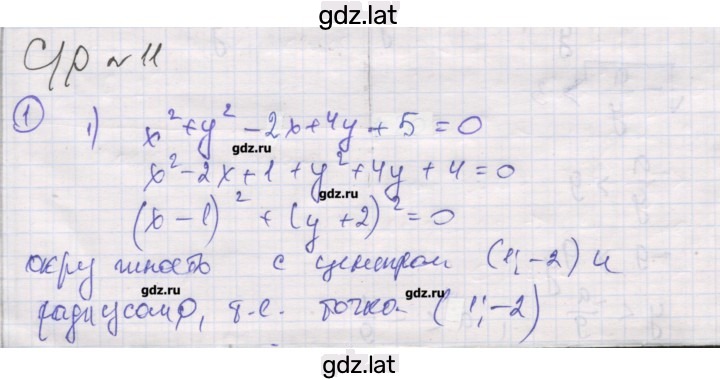 gdz.lat
С/р № 11
① 1) x² + y² - 2x + 4y + 5 = 0
gdz.ru
x² - 2x + 1 + y² + 4y + 4 = 0
gdz.ru
(x - 1)² + (y + 2)² = 0
окружность с центром (1; -2) и
gdz.ru gdz.ru
радиусом 0, т.е. точка (1; -2)
gdz.lat